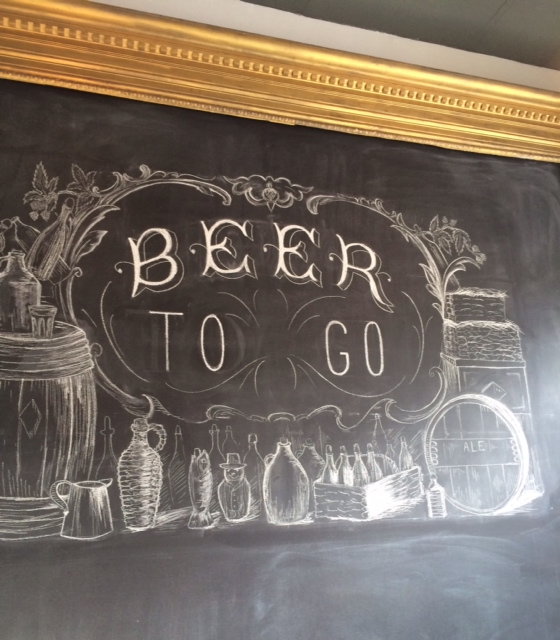 BEER
TO GO
ALE